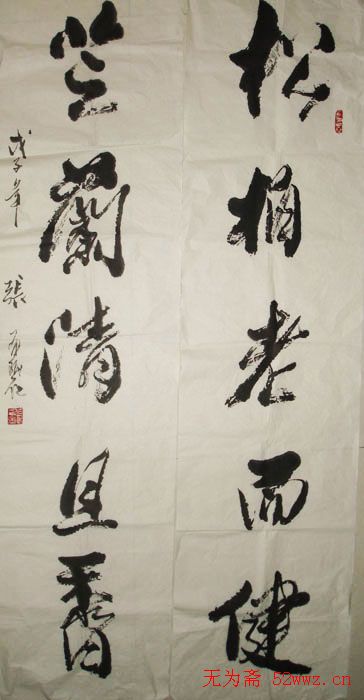 松柏老而健
芝蘭清且香
戊子年 張
无为斋 52wwz.cn